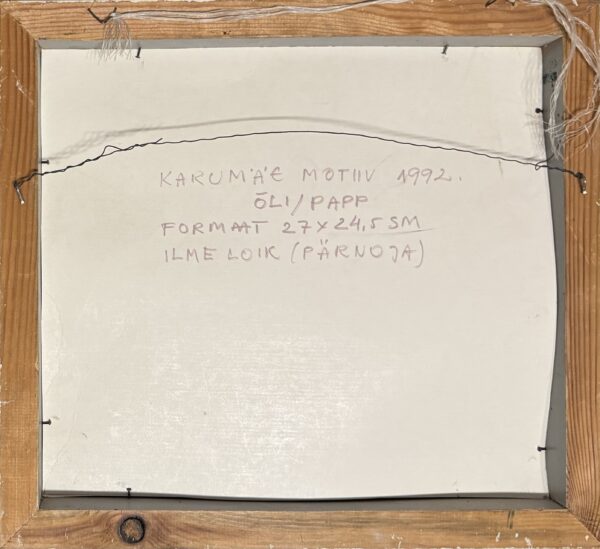 KARUMÄE MOTIIV 1992.
ÕLI/PAPP
FORMAAT 27X24,5 SM
ILME LOIK (PÄRNOJA)